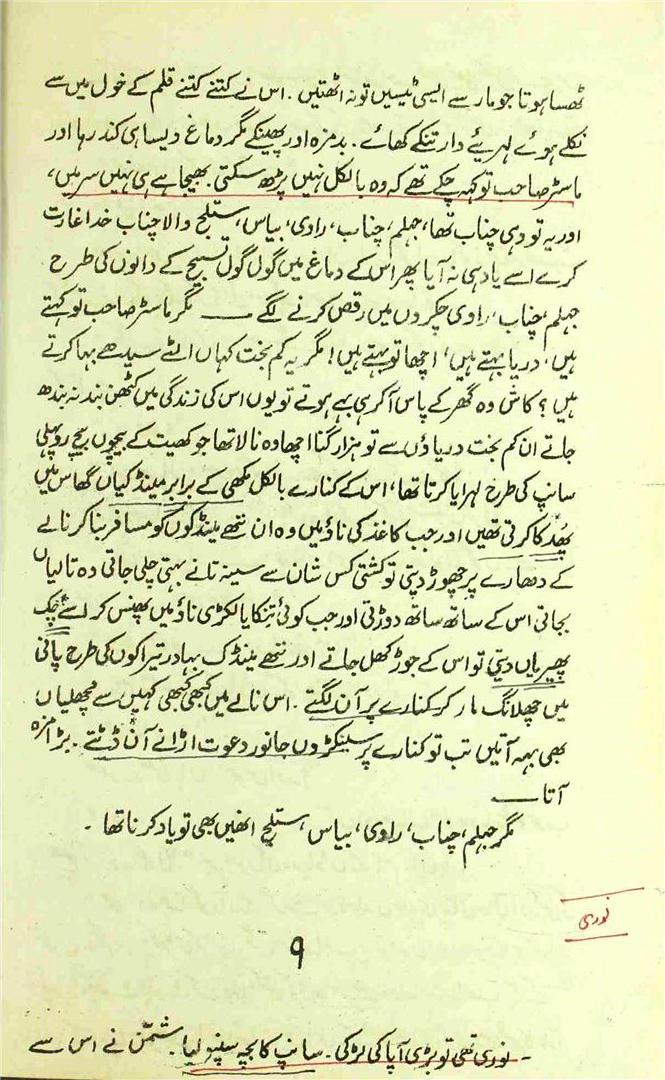 ٹھسا ہوتا جو مار سے ایسی ٹیسیں تو نہ اٹھتیں ۔ اس نے کتنے کتنے قلم کے خول میں سے
نکلے ہوئے لہریئے دار تنکے کھائے ۔ بدمزہ اور پھینکے مگر دماغ ویسا ہی کند رہا اور
ماسٹر صاحب تو کہہ چکے تھے کہ وہ بالکل نہیں پڑھ سکتی ۔ بھیجا ہے ہی نہیں سر میں ،
اور یہ تو وہی چناب تھا ، جہلم ، چناب ، راوی ، بیاس ، ستلج والا چناب خدا غارت
کرے اسے یاد ہی نہ آیا پھر اس کے دماغ میں گول گول تسبیح کے دانوں کی طرح
جہلم ، چناب ، راوی چکروں میں رقص کرنے لگے —— مگر ماسٹر صاحب تو کہتے
ہیں ، دریا بہتے ہیں ، اچھا تو بہتے ہیں ! مگر یہ کم بخت کہاں الٹے سیدھے بہا کرتے
ہیں ؟ کاش وہ گھر کے پاس آکر ہی بہے ہوتے تو یوں اس کی زندگی میں کٹھن بند نہ بندھ
جاتے ان کم بخت دریاؤں سے تو ہزار گنا اچھا وہ نالا تھا جو کھیت کے بیچوں بیچ روپہلی
سانپ کی طرح لہرایا کرتا تھا ، اس کے کنارے بالکل مکھی کے برابر مینڈکیاں گھاس میں
پھدکا کرتی تھیں اور جب کاغذ کی ناؤ میں وہ ان ننھے مینڈکوں کو مسافر بنا کر نالے
کے دھارے پر چھوڑ دیتی تو کشتی کس شان سے سینہ تانے بہتی چلی جاتی وہ تالیاں
بجاتی اس کے ساتھ ساتھ دوڑتی اور جب کوئی تنکا یا لکڑی ناؤ میں پھنس کر اسے چک
پھیریاں دیتی تو اس کے جوڑ کھل جاتے اور ننھے مینڈک بہادر تیراکوں کی طرح پانی
میں چھلانگ مار کر کنارے پر آن لگتے ۔ اس نالے میں کبھی کبھی کہیں سے مچھلیاں
بھی بہہ آتیں تب تو کنارے پر سینکڑوں جانور دعوت اڑانے آن ڈٹتے ۔ بڑا مزہ
آتا ——
مگر جہلم ، چناب ، راوی ، بیاس ، ستلج انھیں بھی تو یاد کرنا تھا ۔
نوری
۹
نوری تھی تو بڑی آپا کی لڑکی ۔ سانپ کا بچہ سنپولیا ۔ شمن نے اس سے